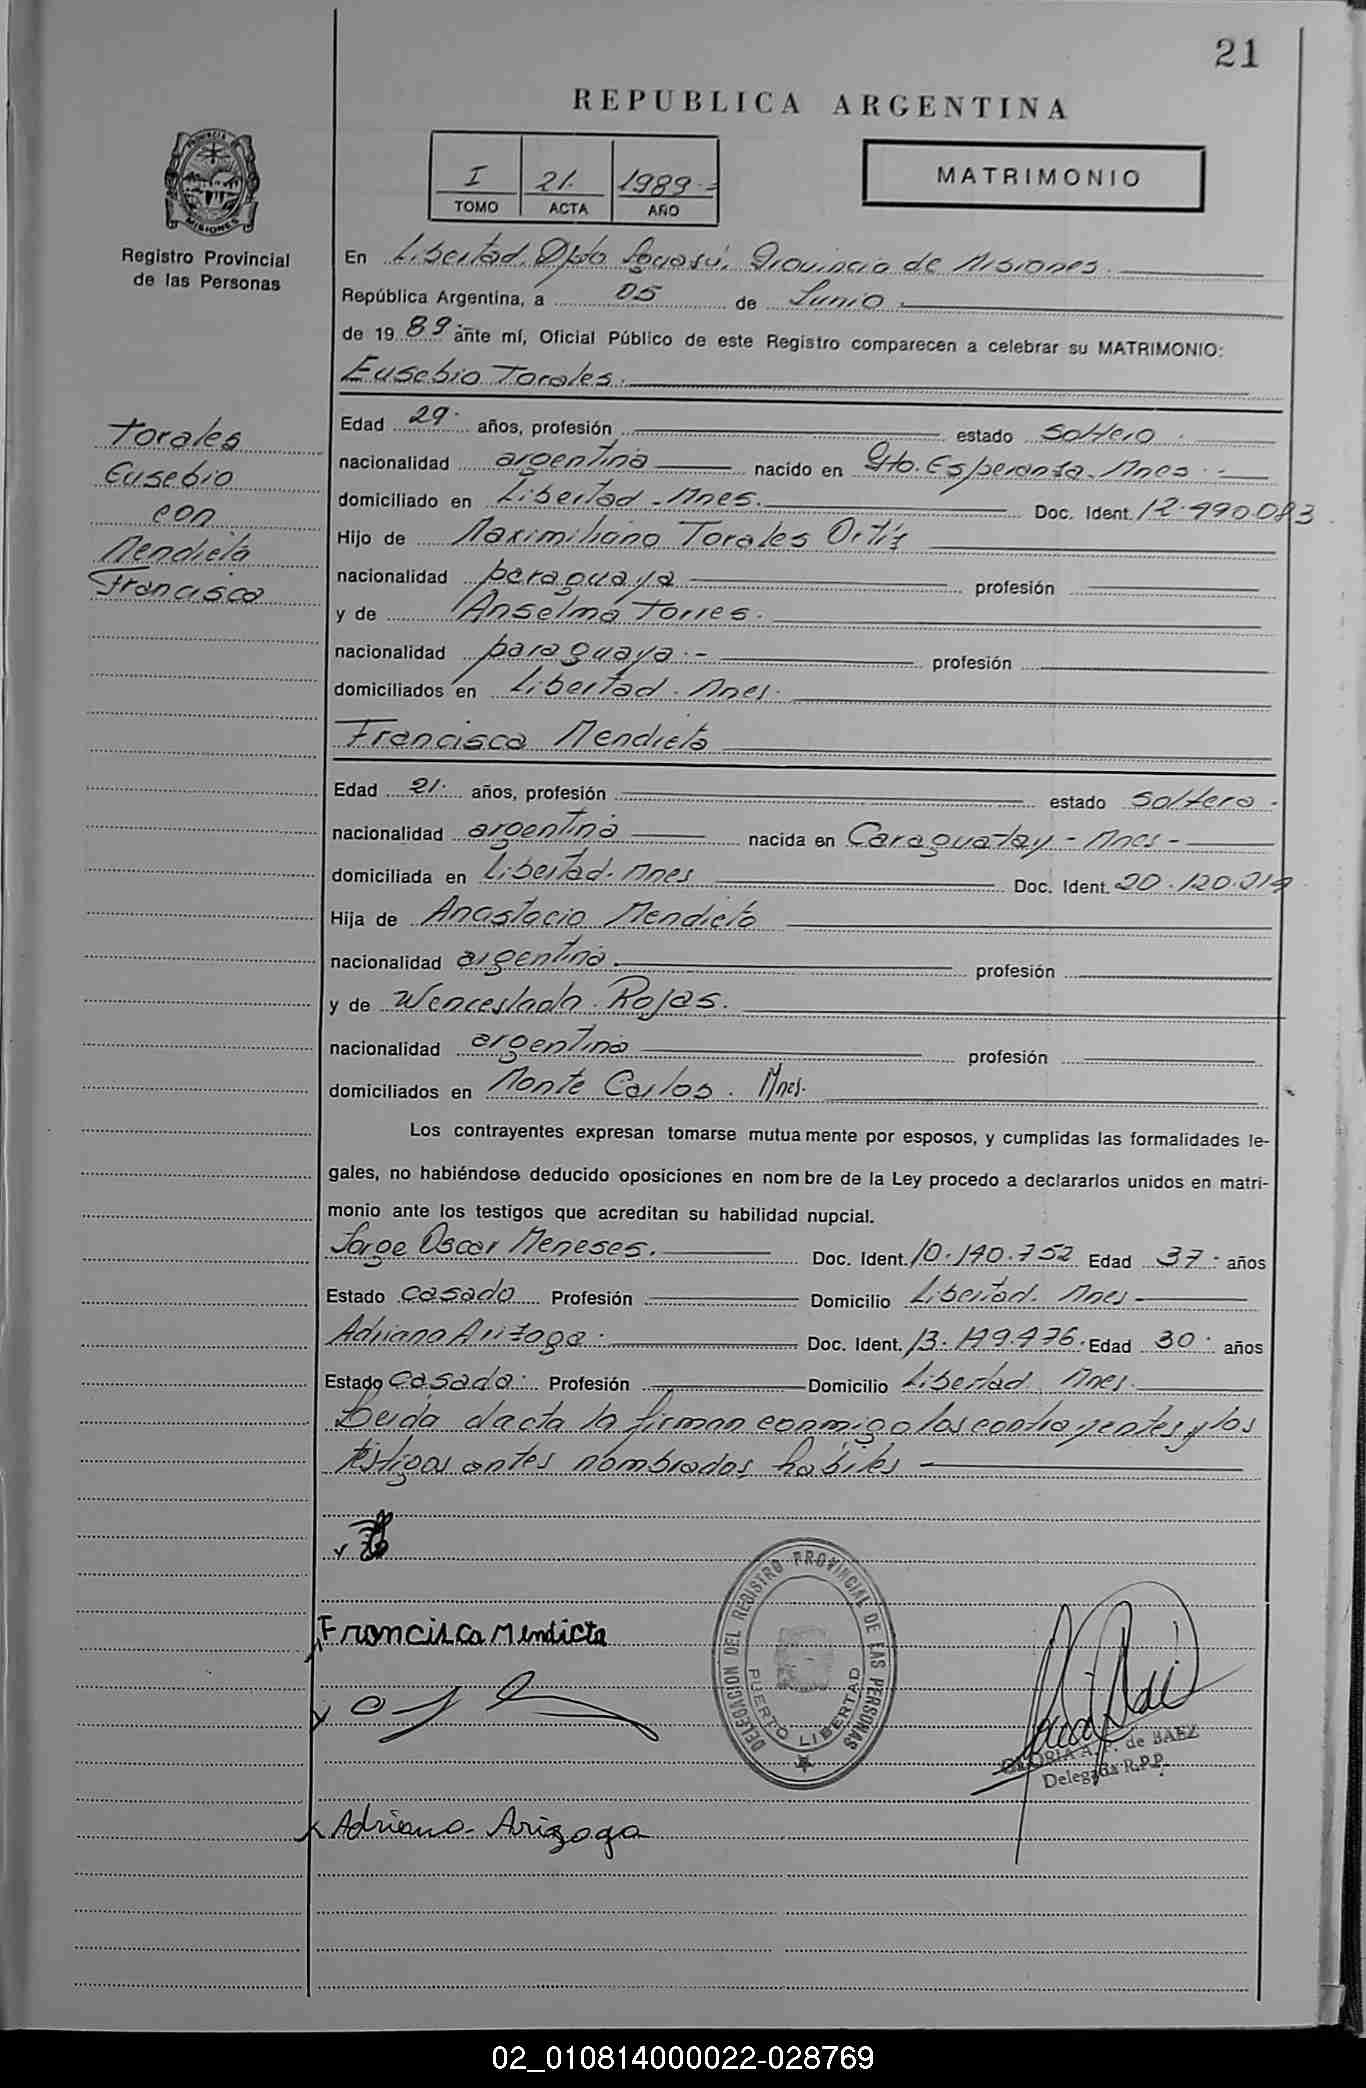 21
REPUBLICA ARGENTINA
I 21. 1989.=
TOMO ACTA AÑO
MATRIMONIO
PROVINCIA DE MISIONES
Registro Provincial
de las Personas
Torales
Eusebio
con
Mendieta
Francisca
En Libertad, Dpto Iguasú, Provincia de Misiones.
República Argentina, a 05 de Junio.
de 19 89 ante mí, Oficial Público de este Registro comparecen a celebrar su MATRIMONIO:
Eusebio Torales.
Edad 29. años, profesión estado Soltero.
nacionalidad argentina nacido en Pto. Esperanza. Mnes.-
domiciliado en Libertad - Mnes. Doc. Ident. 12.990.083
Hijo de Maximiliano Torales Ortíz
nacionalidad paraguaya profesión
y de Anselma Torres.
nacionalidad paraguaya.- profesión
domiciliados en Libertad. Mnes.
Francisca Mendieta
Edad 21. años, profesión estado Soltera.
nacionalidad argentina nacida en Caraguatay - Mnes -
domiciliada en Libertad. Mnes Doc. Ident. 20.120.219
Hija de Anastacio Mendieta
nacionalidad argentina. profesión
y de Wenceslada Rojas.
nacionalidad argentina profesión
domiciliados en Monte Carlos. Mnes.
Los contrayentes expresan tomarse mutuamente por esposos, y cumplidas las formalidades le-
gales, no habiéndose deducido oposiciones en nombre de la Ley procedo a declararlos unidos en matri-
monio ante los testigos que acreditan su habilidad nupcial.
Jorge Oscar Meneses. Doc. Ident. 10.140.752 Edad 37. años
Estado casado Profesión Domicilio Libertad. Mnes
Adriana Arizaga. Doc. Ident. 13.149.476. Edad 30. años
Estado casada. Profesión Domicilio Libertad. Mnes.
Leida el acta la firman conmigo los contrayentes y los
testigos antes nombrados hábiles
Francisca Mendieta
DELEGACION DEL REGISTRO PROVINCIAL DE LAS PERSONAS
PUERTO LIBERTAD
GLORIA A. P. de BAEZ
Delegada R.P.P.
Adriana Arizaga
02_010814000022-028769